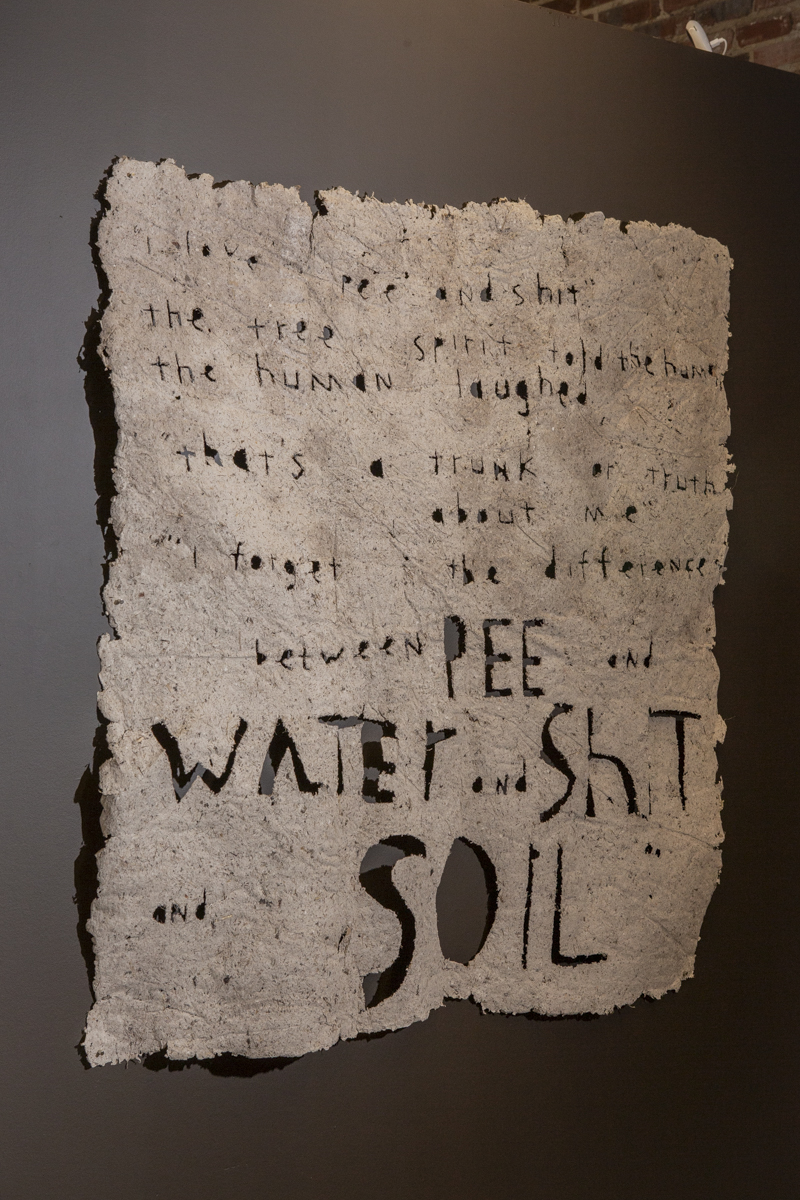 "I love pee and shit"
the tree spirit told the human
the human laughed
"that's a trunk or truth
about me"
"I forget the difference
between PEE and
WATEr and ShiT
and SOIL"